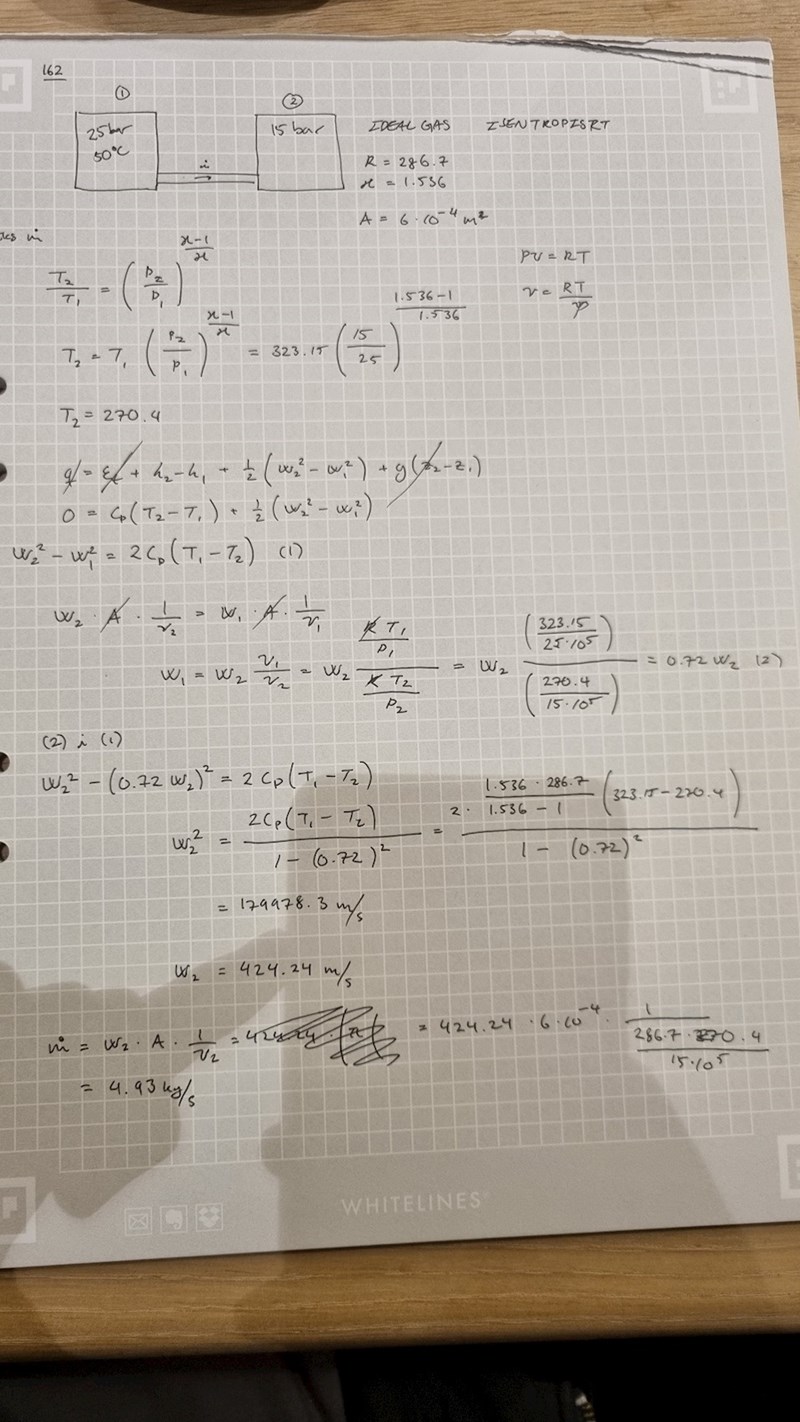 162
① ②
25 bar 15 bar IDEAL GAS ISENTROPISKT
50°C
ṁ R = 286.7
ϰ = 1.536
A = 6·10⁻⁴ m²
ṁ
T₂/T₁ = (p₂/p₁)^((ϰ-1)/ϰ) pv = RT
v = RT/p
T₂ = T₁ (p₂/p₁)^((ϰ-1)/ϰ) = 323.15 (15/25)^((1.536-1)/1.536)
T₂ = 270.4
q = εₜ + h₂-h₁ + ½(w₂² - w₁²) + g(z₂-z₁)
0 = Cp(T₂-T₁) + ½(w₂² - w₁²)
w₂² - w₁² = 2Cp(T₁-T₂) (1)
w₂ · A · 1/v₂ = w₁ · A · 1/v₁
w₁ = w₂ v₁/v₂ = w₂ (RT₁/p₁)/(RT₂/p₂) = w₂ (323.15/25·10⁵)/(270.4/15·10⁵) = 0.72 w₂ (2)
(2) i (1)
w₂² - (0.72 w₂)² = 2Cp(T₁-T₂)
w₂² = 2Cp(T₁ - T₂)/(1-(0.72)²) = 2 · (1.536 · 286.7)/(1.536 - 1) (323.15-270.4)/(1 - (0.72)²)
= 179978.3 m/s
w₂ = 424.24 m/s
ṁ = w₂ · A · 1/v₂ = = 424.24 · 6·10⁻⁴ · 1/(286.7 · 270.4/15·10⁵)
= 4.93 kg/s
WHITELINES®